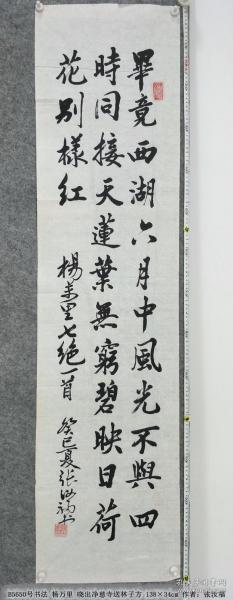 畢竟西湖六月中風光不與四
時同接天蓮葉無窮碧映日荷
花別樣紅
楊萬里七絕一首
癸巳夏張汝福书
B5650号书法_杨万里 晓出净慈寺送林子方_138×34cm 作者：张汝福